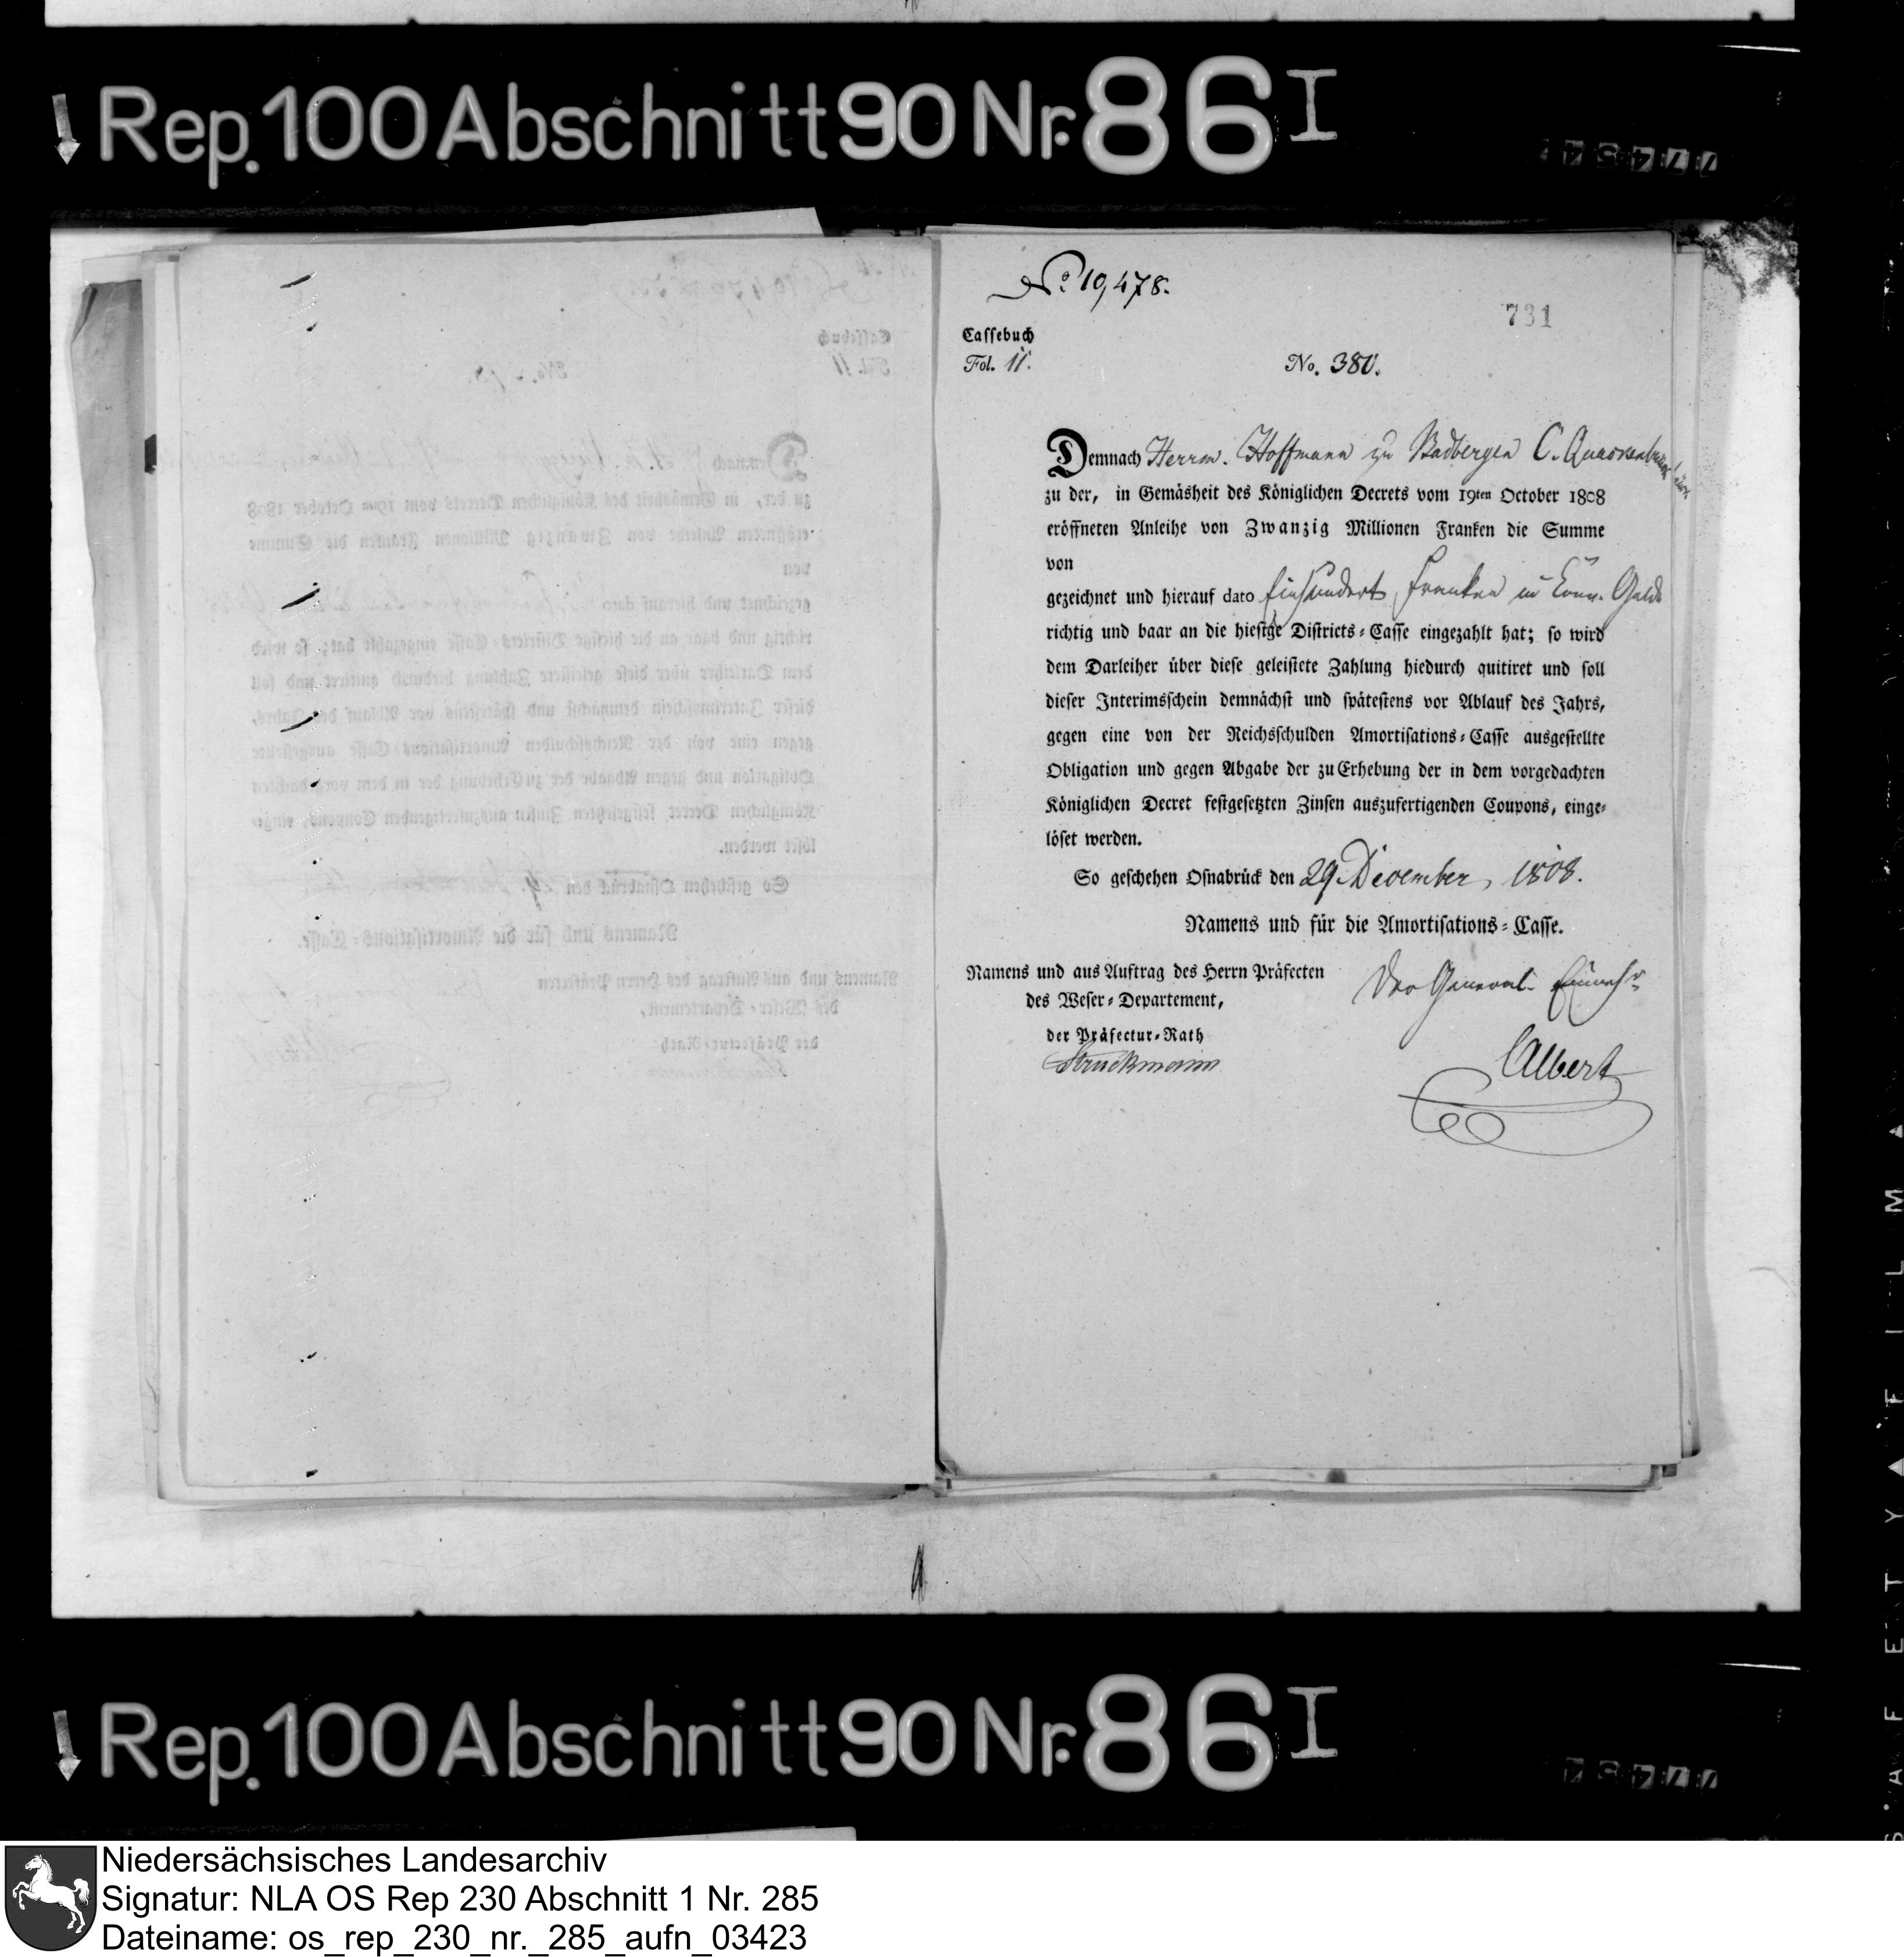 Rep. 100 Abschnitt 90 Nr. 86 I
No 19,478.
731
Cassebuch
Fol. 11.
No. 380.
Demnach Herrm. Hoffmann zu Badbergen C. Quackenbrück
zu der, in Gemäsheit des Königlichen Decrets vom 19ten October 1808
eröffneten Anleihe von Zwanzig Millionen Franken die Summe
von
gezeichnet und hierauf dato Einhundert Franken in Conv. Gelde
richtig und baar an die hiesige Districts-Casse eingezahlt hat; so wird
dem Darleiher über diese geleistete Zahlung hiedurch quitiret und soll
dieser Interimsschein demnächst und spätestens vor Ablauf des Jahrs,
gegen eine von der Reichsschulden Amortisations-Casse ausgestellte
Obligation und gegen Abgabe der zu Erhebung der in dem vorgedachten
Königlichen Decret festgesetzten Zinsen auszufertigenden Coupons, einge-
löset werden.
So geschehen Osnabrück den 29. December, 1808.
Namens und für die Amortisations-Casse.
Namens und aus Auftrag des Herrn Präfecten
des Weser-Departement,
der Präfectur-Rath
Struckmann
Der General-Einnehr
Albert
Rep. 100 Abschnitt 90 Nr. 86 I
SAFETY FILM
Niedersächsisches Landesarchiv
Signatur: NLA OS Rep 230 Abschnitt 1 Nr. 285
Dateiname: os_rep_230_nr._285_aufn_03423